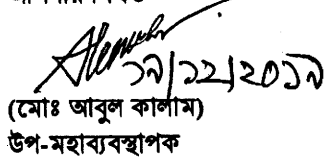 ১৯/১২/২০১৯
(মোঃ আবুল কালাম)
উপ-মহাব্যবস্থাপক